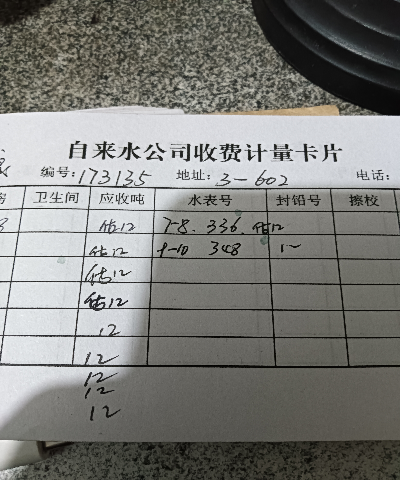 自来水公司收费计量卡片
编号:173135 地址:3-602 电话:
卫生间 应收吨 水表号 封铅号 擦校
估12 7-8. 336. 估12
估12 9-10 348
估12
估12
12
12
12
12
12